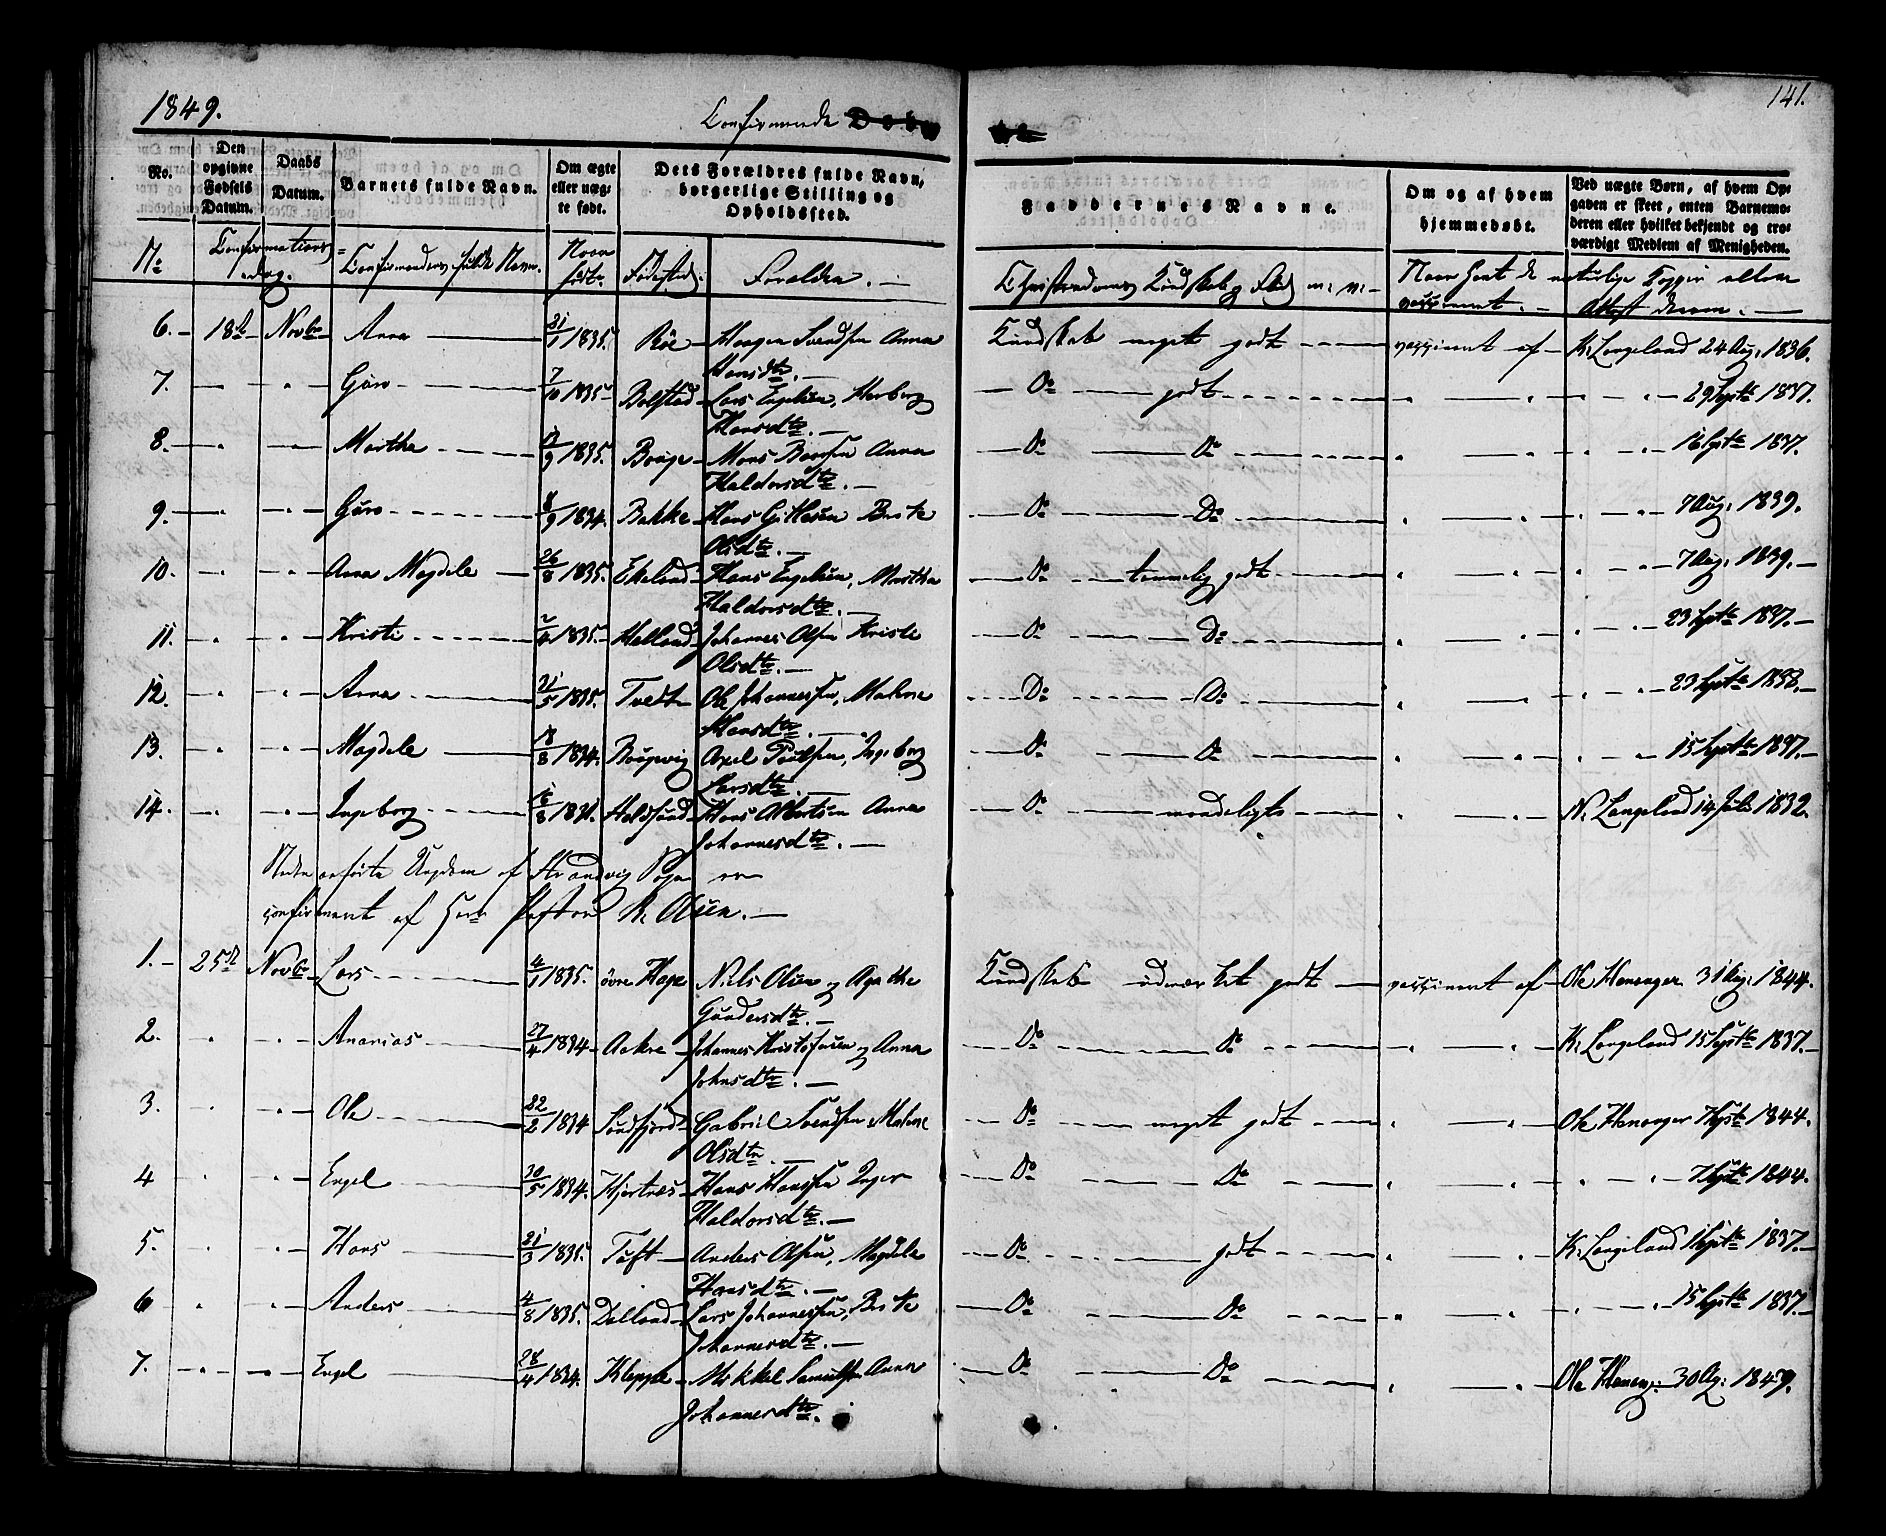 1849.
Confirmerede Døbte
141.
No.
Den opgivne Fødsels Datum.
Daabs Datum.
Barnets fulde Navn.
Om ægte eller uæg- te født.
Dets Forældres fulde Navn, borgerlige Stilling og Opholdssted.
Faddernes Navne.
Om og af hvem hjemmedøbt.
Ved uægte Børn, af hvem Op- gaven er skeet, enten Barnemo- deren eller hvilket bekjendt og tro- værdigt Medlem af Menigheden.
No
Confirmations- dag.
Confirmandens fulde Navn.
Naar født.
Fødested.
Forældre. —
Christendoms Kundskab og Flid m: m: —
Naar havt de naturlige Kopper eller vaccineret. —
Attest derom. —
6. — 18de Novbr — Anna — 21/1 1835. Røe — Haagen Svendsen Anna Hansdtr. — Kundskab meget godt — vaccineret af — K: Langeland 24 Aug: 1836.
7. — " — Guro — 7/10 1835 — Bolstad — Lars Engelsen, Herborg Hansdtr. — Do — godt — " — " — 29 Septbr 1837.
8. — " — Marthe — /9 1835. Bouge — Mons Anna Haldorsdtr. — Do — Do — " — " — 16 Septbr 1837.
9. — " — Guro — 8/9 1834. Bakke — Hans Brite Olsdtr. — Do — Do — " — " — 7 Aug: 1839.
10. — " — Anna Magdele — 26/8 1835. Ekeland — Hans Engelsen, Martha Haldorsdtr. — Do — temmelig godt — " — " — 7 Aug: 1839. —
11. — " — Kristi — /4 1835. — Halland — Johannes Olsen Kriste Olsdtr. — Do — Do — " — " — 23 Septbr 1837. —
12. — " — Anna — 21/5 1835. Tvedt — Ole Johannessen, Malene Hansdtr. — Do — Do — " — " — 23 Septbr 1838. —
13. — " — Magdele — 18/8 1834. — Axel Poulsen, Ingeborg Larsdtr. — Do — Do — " — " — 15 Septbr 1837. —
14. — " — Ingeborg — /8 1831. Hans Albertsen Anna Johannesdtr. — Do — maadeligt — " — " — N: Langeland 14 Juli 1832.
Nedenanførte Ungdom af Strandvig Sogn ere
confirmeret af Herr Pastor R: Olsen. —
1. — 25de Novbr — Lars — 4/1 1835. øvre Hage Niels Olsen og Agathe Gundersdtr. — Kundskab udmærket godt — vaccineret af — Ole Henanger 31 Aug: 1844.
2. — " — Ananias — 27/4 1834 — Aakre — Johannes Kristofersen og Anna Johnsdtr. — Do — Do — " — " — K: Langeland 15 Septbr 1837. —
3. — " — Ole — 22/2 1834 Sundfjord — Gabriel Svendsen Malene Olsdtr. — Do — meget godt — " — " — Ole Henanger 7 Septbr 1844.
4 — " — Engel — 30/5 1834. Hjertnes — Hans Hansen Inger Haldorsdtr. — Do — Do — " — " — 7 Septbr 1844.
5. — " — Hans — 21/3 1835. Tuft — Anders Olsen, Magdela Hansdtr. — Do — godt — " — " — K: Langeland 1 Septbr 1837. —
6 — " — Anders — 4/8 1835. Dalland — Lars Johannessen, Brite Johannesdtr. — Do — Do — " — " — 15 Septbr 1837. —
7. — " — Engel — 28/4 1834. Kleppe — Mikkel Samuelsen Anna Johannesdtr. — Do — Do — " — " — Ole Henang: 30 Ag: 1849.